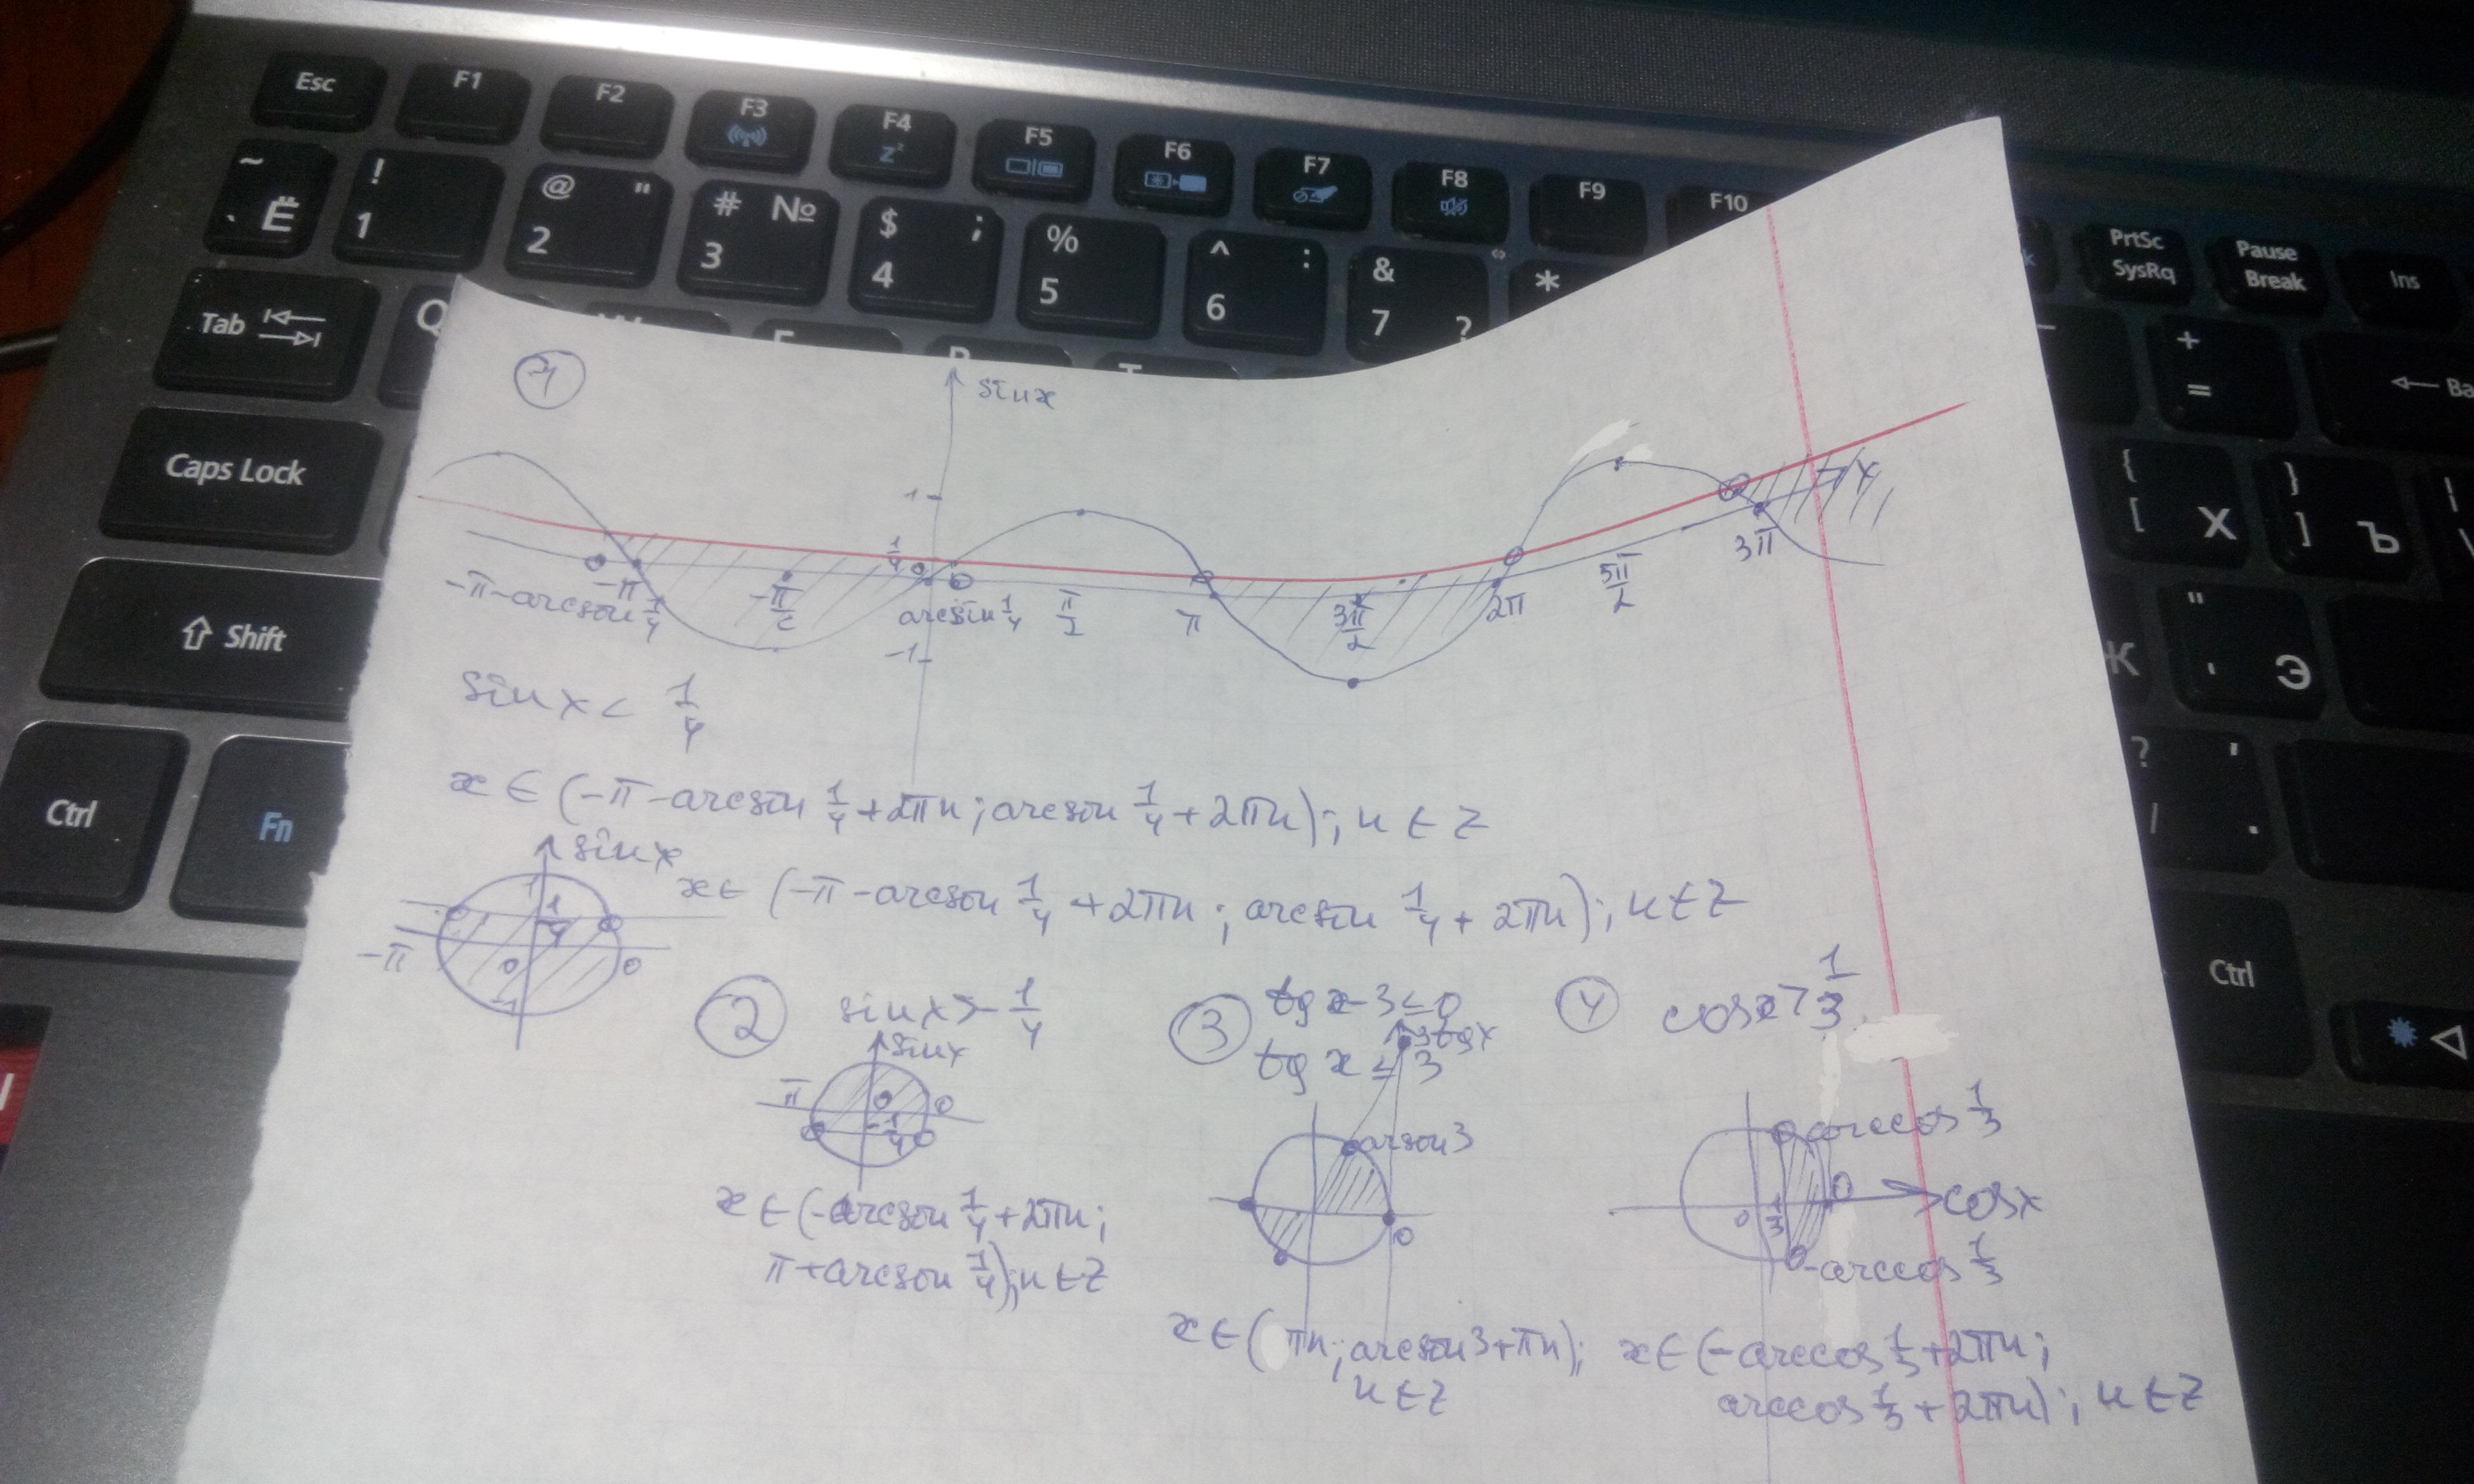 Esc F1 F2 F3 F4 F5 F6 F7 F8 F9 F10 PrtSc SysRq Pause Break Ins
~ ` Ё ! 1 @ " 2 # № 3 $ ; 4 % 5 ^ : 6 & 7 ? * + =
Tab Q
Caps Lock { [ Х } ] Ъ
Shift " ' Э
Ctrl Fn Ctrl
1
sin x
1
1/4
0
-π - arcsin 1/4
-π
-π/2
arcsin 1/4
π/2
π
3π/2
2π
5π/2
3π
x
-1
sin x < 1/4
x ∈ (-π - arcsin 1/4 + 2πn; arcsin 1/4 + 2πn); n ∈ Z
sin x
1
1/4
-π
0
0
-1
x ∈ (-π - arcsin 1/4 + 2πn; arcsin 1/4 + 2πn); n ∈ Z
2
sin x > -1/4
sin x
π
0
0
-1/4
x ∈ (-arcsin 1/4 + 2πn;
π + arcsin 1/4); n ∈ Z
3
tg x - 3 ≤ 0
tg x ≤ 3
3 tg x
arcsin 3
0
x ∈ ( πn; arcsin 3 + πn);
n ∈ Z
4
cos x > 1/3
arccos 1/3
0
0
1/3
cos x
-arccos 1/3
x ∈ (-arccos 1/3 + 2πn;
arccos 1/3 + 2πn); n ∈ Z